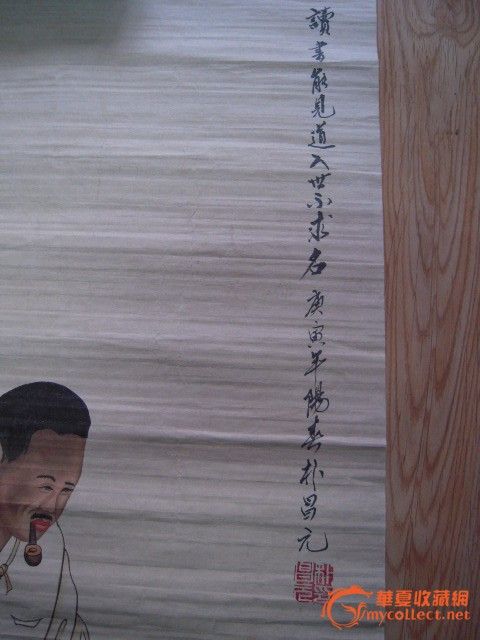 讀書能見道入世不求名 庚寅年陽春朴昌元
華夏收藏網
mycollect.net